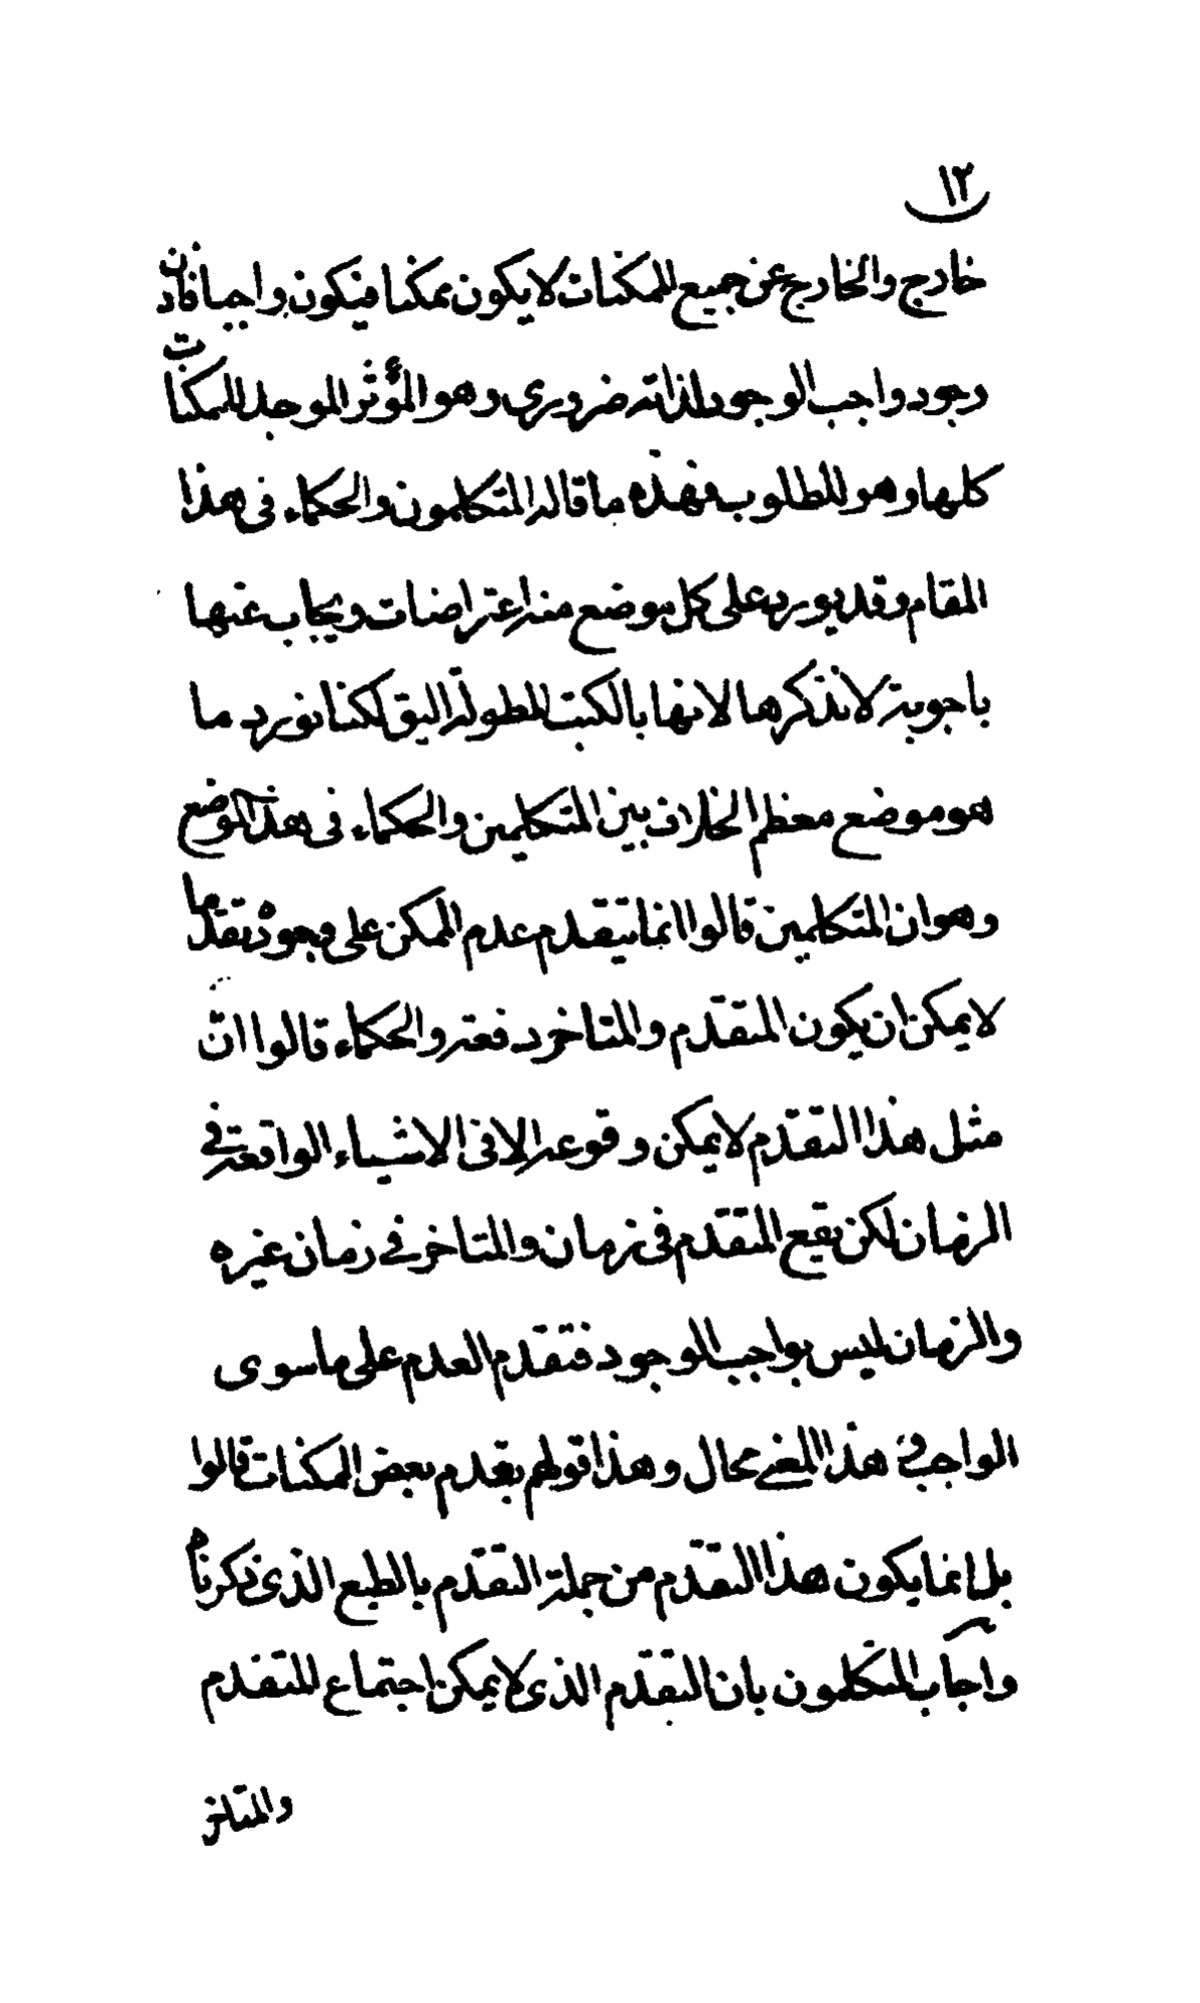 ١٢
خارج والخارج عن جميع الممكنات لا يكون ممكنا فيكون واجبا فاذن
وجود واجب الوجود لذاته ضروري وهو المؤثر الموجد للممكنات
كلها وهو المطلوب فهذه ما قاله المتكلمون والحكماء فى هذا
المقام وقد يورد على كل موضع منه اعتراضات ويجاب عنها
باجوبة لا نذكرها لانها بالكتب المطولة اليق لكنا نورد ما
هو موضع معظم الخلاف بين المتكلمين والحكماء فى هذا الموضع
وهو ان المتكلمين قالوا انما يتقدم عدم الممكن على وجوده تقدما
لا يمكن ان يكون المتقدم والمتاخر دفعة والحكماء قالوا انّ
مثل هذا التقدّم لا يمكن وقوعه الا فى الاشياء الواقعة في
الزمان لكن يقع المتقدم فى زمان والمتاخر في زمان غيره
والزمان ليس بواجب الوجود فتقدم العدم على ما سوى
الواجب فى هذا المعنى محال وهذا قولهم بقدم بعض الممكنات قالوا
بل انما يكون هذا التقدّم من جملة التقدّم بالطبع الذى ذكرناه
واجاب المتكلمون بان التقدّم الذى لا يمكن اجتماع المتقدم
والمتاخر